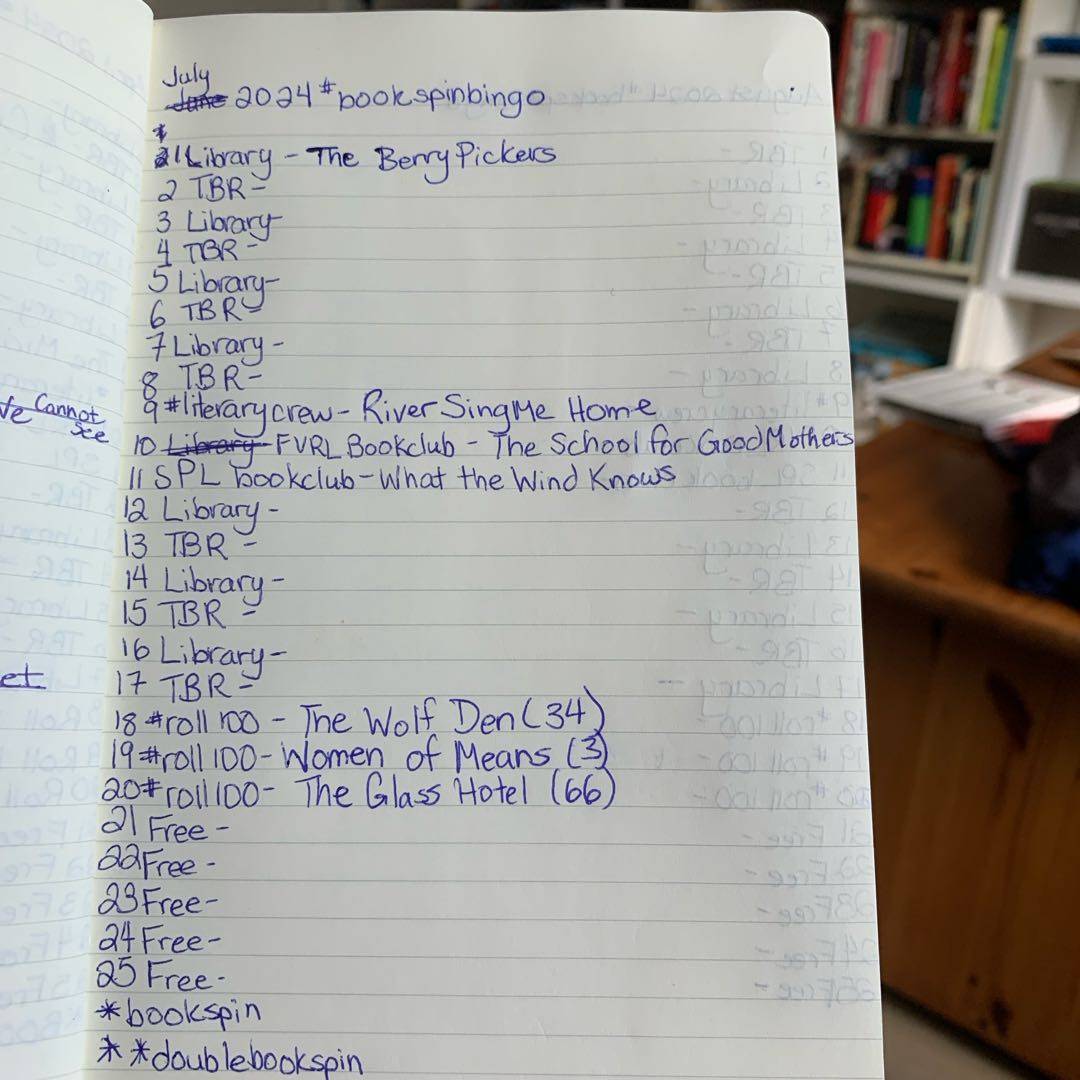 July
June 2024 #bookspinbingo
*
1 Library - The Berry Pickers
2 TBR -
3 Library -
4 TBR -
5 Library -
6 TBR -
7 Library -
8 TBR -
9 #literarycrew - River Sing Me Home
10 Library FVRL Bookclub - The School for Good Mothers
11 SPL bookclub - What the Wind Knows
12 Library -
13 TBR -
14 Library -
15 TBR -
16 Library -
17 TBR -
18 #roll100 - The Wolf Den (34)
19 #roll100 - Women of Means (3)
20 #roll100 - The Glass Hotel (66)
21 Free -
22 Free -
23 Free -
24 Free -
25 Free -
*bookspin
**doublebookspin
Cannot
see